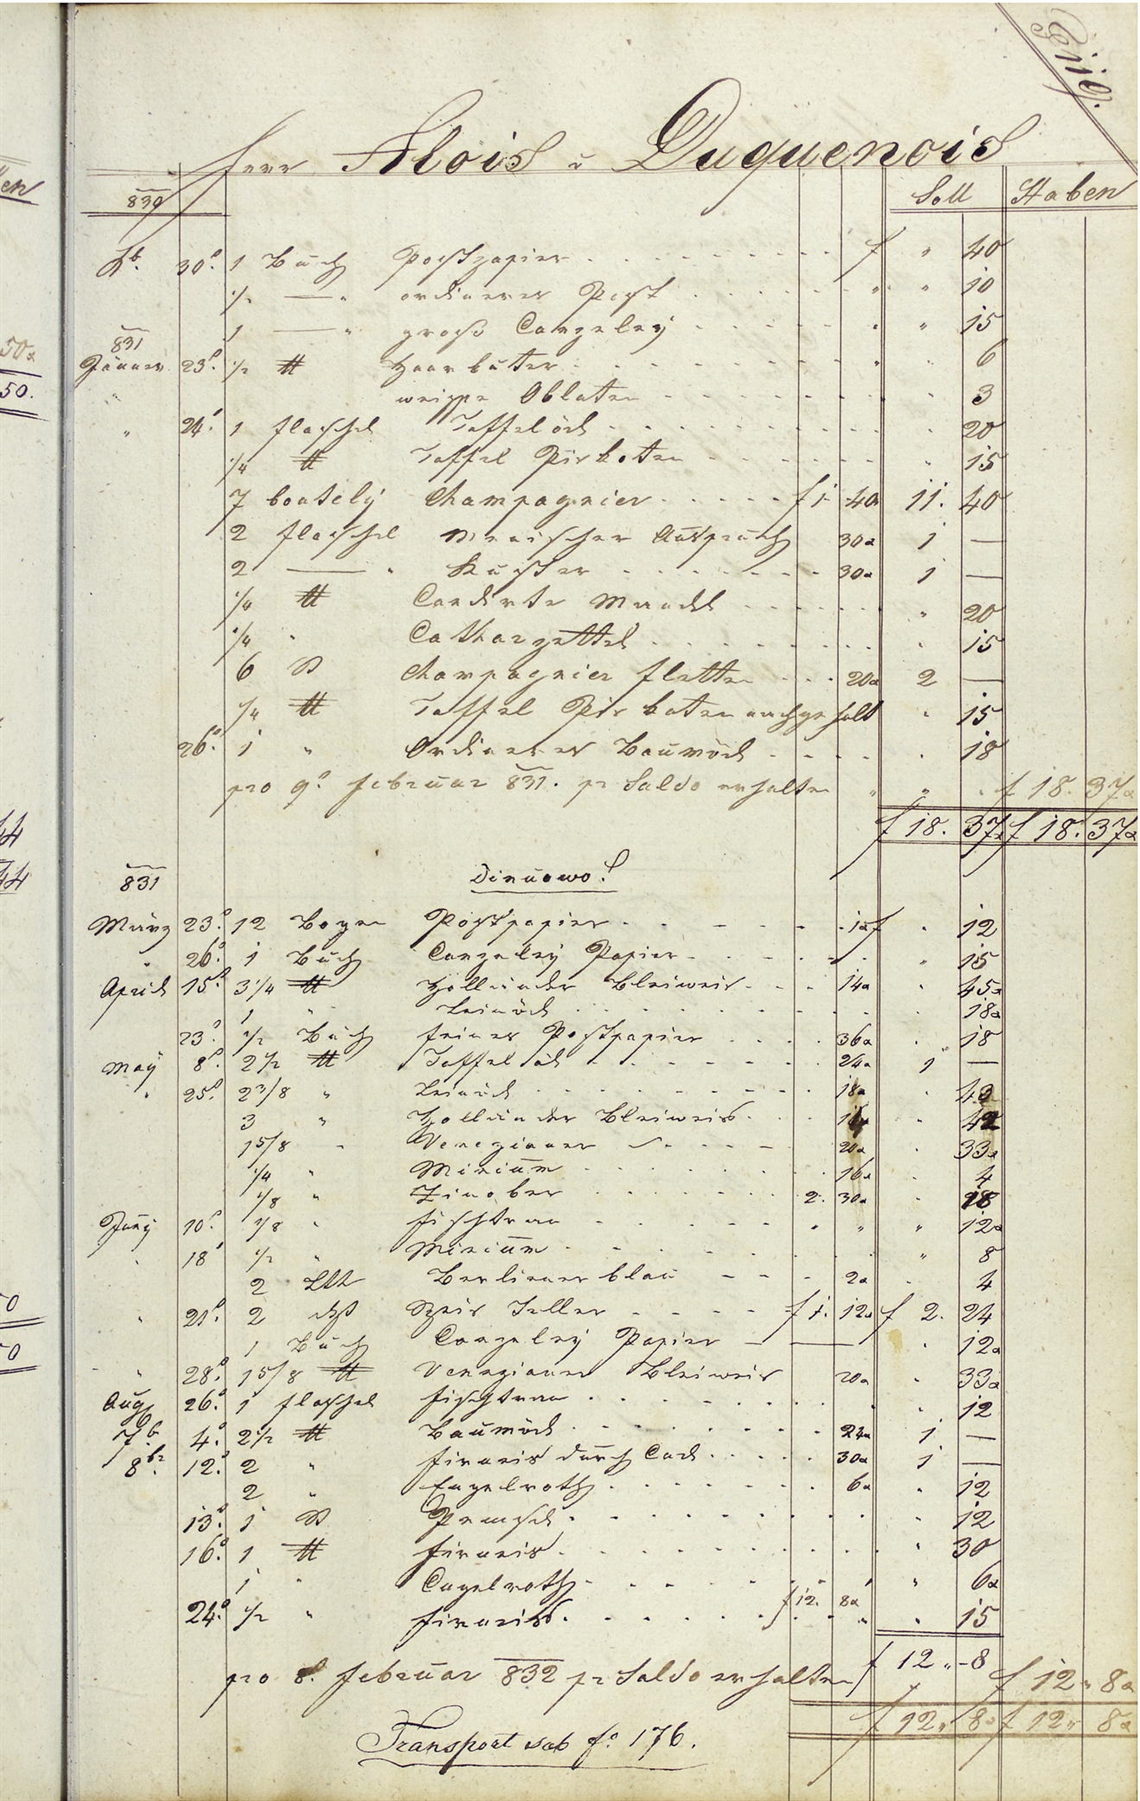 Herr Alois v Duquenois
830 Soll Haben
Xb. 30. 1 Buch Postpapier f " 40
1/2 — " ordinerer Post " " 10
1 — " gross Canzeley " " 15
831
Jänner 23. 1/2 ℔ Haarbuter " 6
" weisse Oblaten " 3
" 24. 1 flaschel Taffelöhl " 20
1/4 ℔ Taffel " 15
7 boutely Champagnier f 1. 40 11. 40
2 flaschel Menischer Ausbruch 30 1 —
2 — " Ruster 30 1 —
1/4 ℔ Candirte Mandl " 20
1/4 " " 15
6 St Champagnier 20 2 —
1/4 ℔ Taffel " 15
26. 1 " Ordinerer Baumöhl " 18
pro 9. Februar 831. pr Saldo erhalten " " f 18. 37
f 18. 37 f 18. 37
831 Dinuowo.
März 23. 12 Bogen Postpapier 1 f " 12
" 26. 1 Buch Canzeley Papier " 15
April 15. 3 1/4 ℔ Holländer Bleiweis 14 " 45
1 " Leinöhl 18
23. 1/2 Buch feines Postpapier 36 " 18
May 8. 2 1/2 ℔ Taffel öhl 24 1 —
" 25. 2 3/8 " Leinöhl 18
3 " Holländer Bleiweis " 42
1 5/8 " Venezianer 20 " 33
1/4 " Minium 16 4
1/8 " Zinober 2. 30 " 18
Juny 10. 1/8 " fischtran " " " 12
" 18 1/2 " Minium " 8
2 Lth Berlinerblau 2 4
" 21. 2 Speis Teller f 1. 12 f 2. 24
1 Buch Canzeley Papier — " 12
" 28. 1 5/8 ℔ Venezianer Bleiweis 20 " 33
Aug 26. 1 flaschel fischtran " 12
7b. 4. 2 1/2 ℔ Baumöhl 24 1 —
8br. 12. 2 " firneis 30 1 —
2 " Engelroth 6 " 12
13. 1 St Pemsel " 12
16. 1 ℔ firneis " 30
1 " Engelroth " 6
24. 1/2 " firneiss f 12. 8 " 15
f 12 " 8
pro 8. Februar 832 pr Saldo erhalten f 12 " 8
f 12 " 8 f 12 " 8
Transport sub fo. 176.